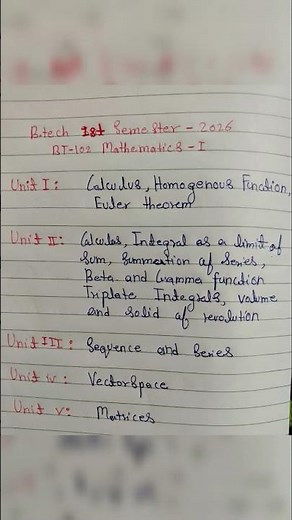 B.tech 1st Semester - 2026
BT-102 Mathematics - I
Unit I : Calculus, Homogenous Function,
Euler theorem
Unit II : Calculas, Integral as a limit of
Sum, Summation of Series,
Beta and Gamma function
Triplate Integrals, volume
and solid of revolution
Unit III : Sequence and Series
Unit IV : VectorSpace
Unit V : Matrices